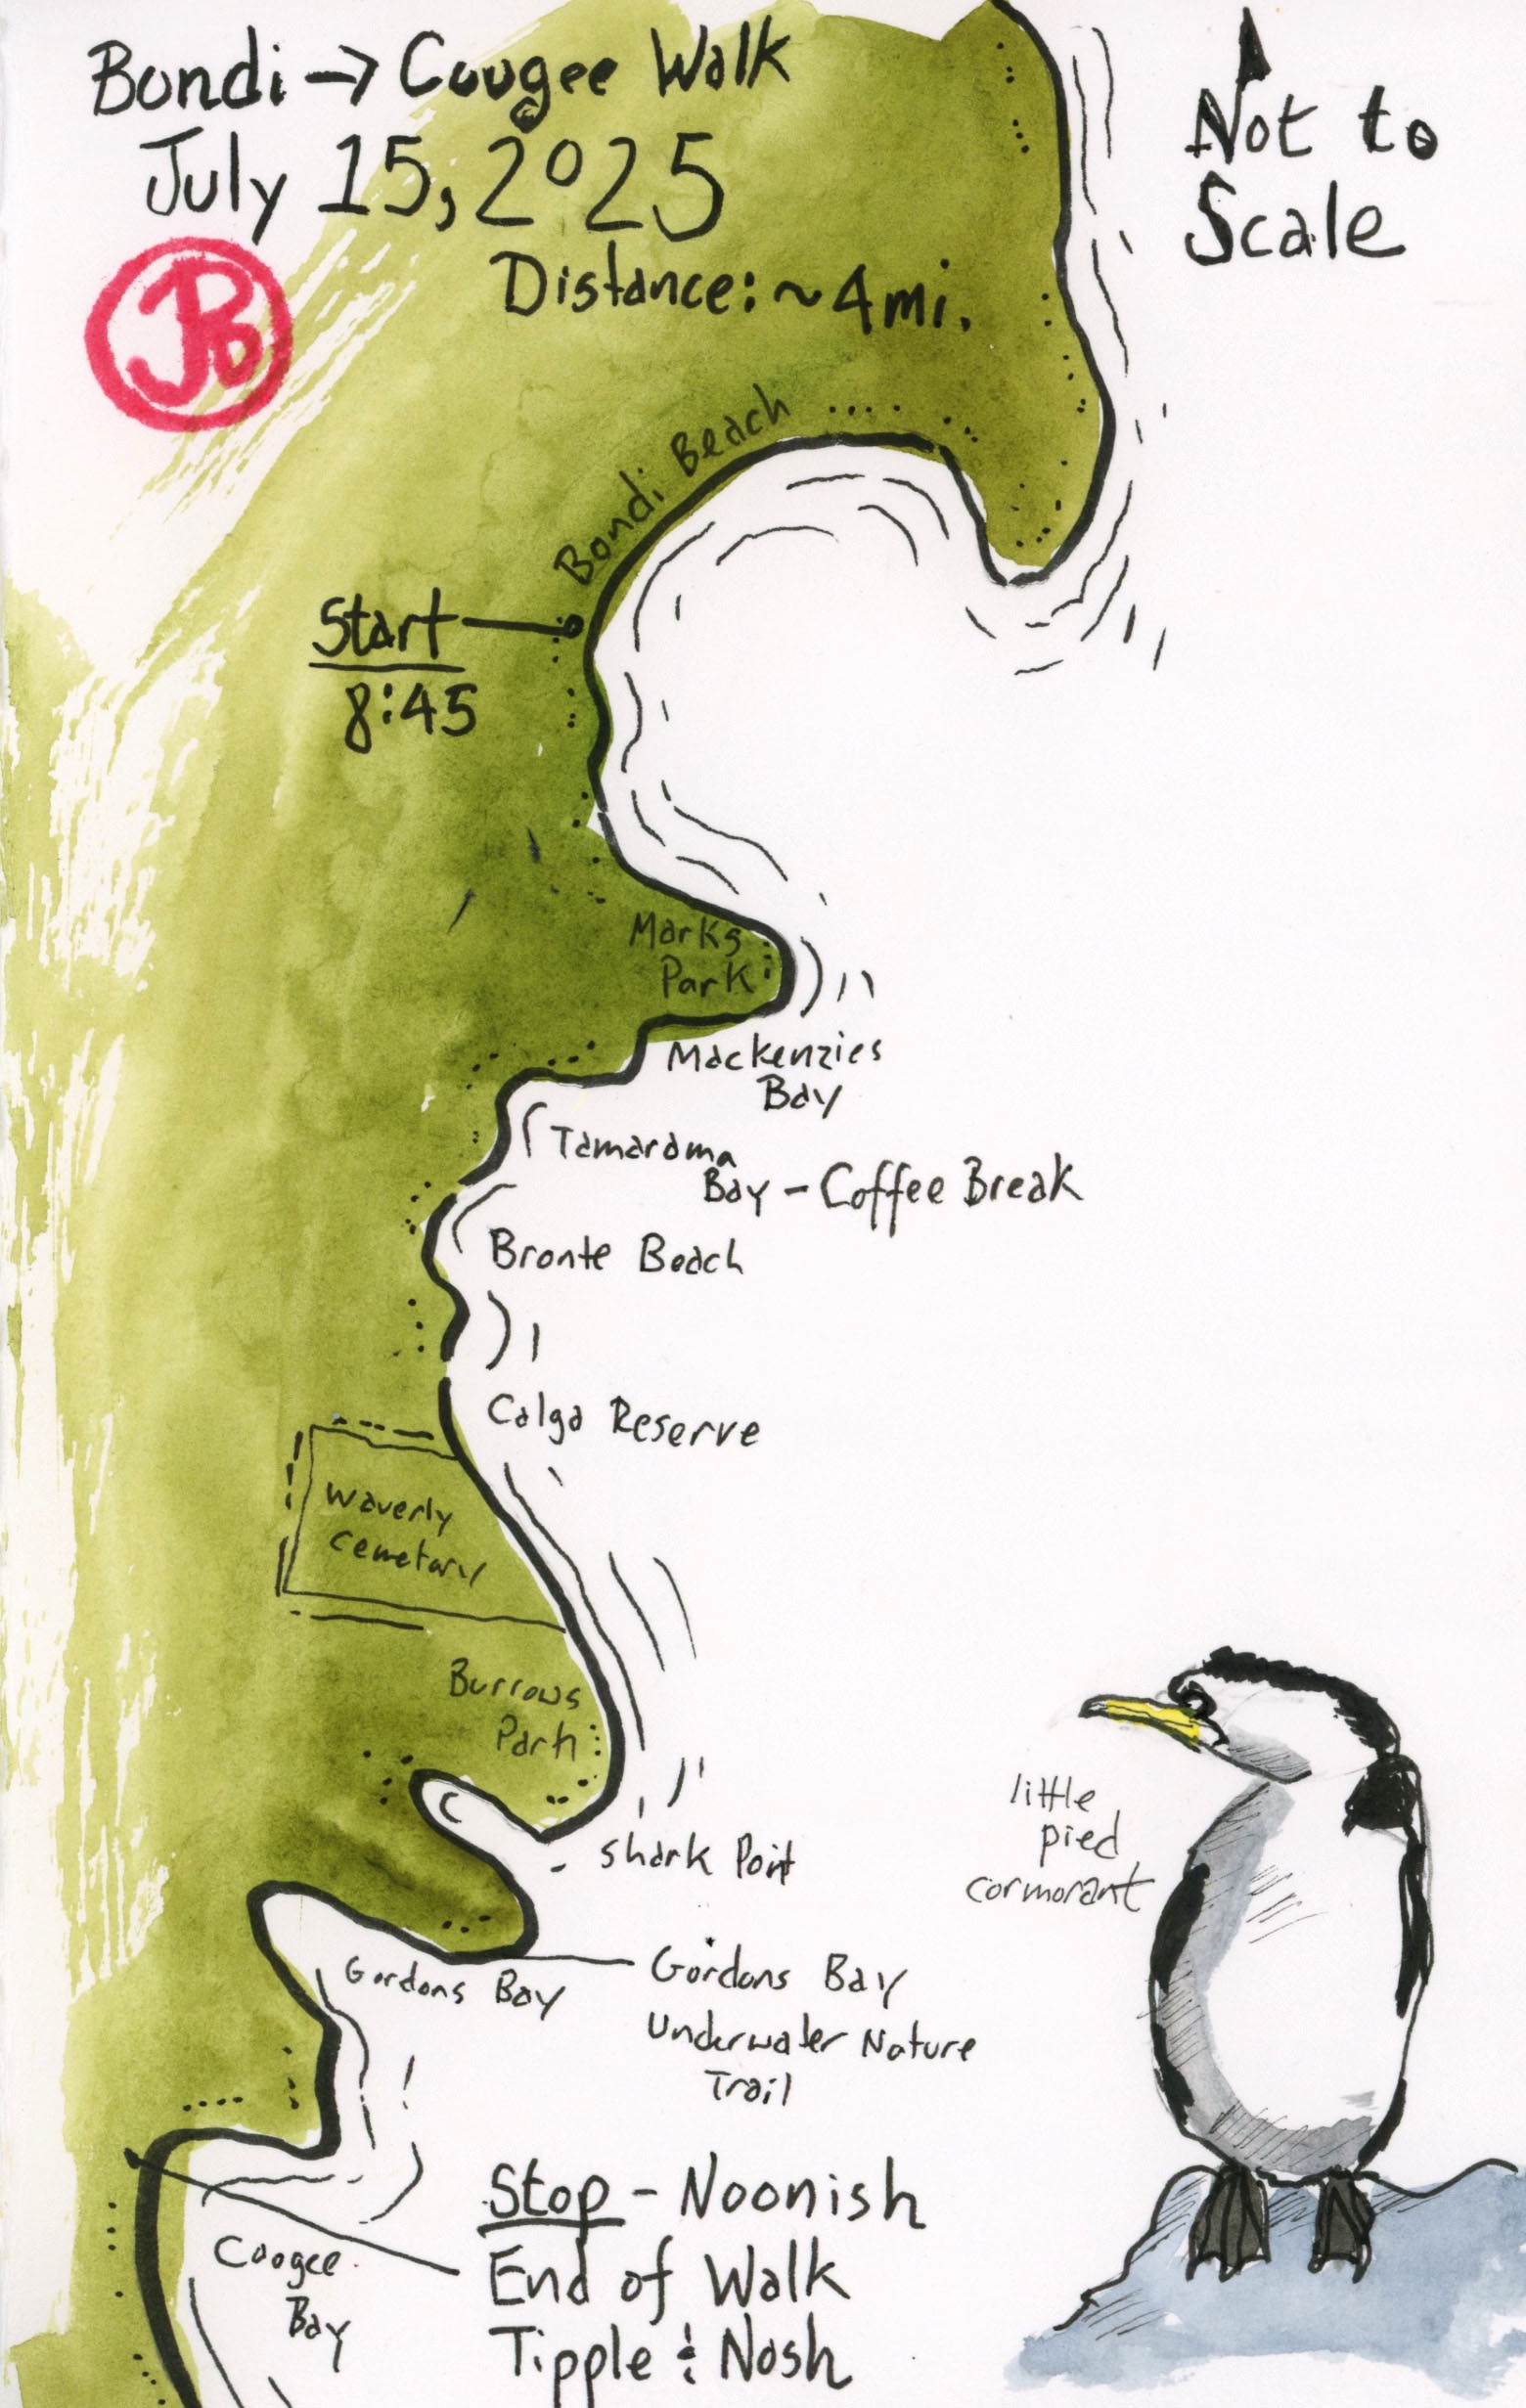 Bondi → Coogee Walk
July 15, 2025
Distance: ~4mi.
Not to
Scale
JPB
Bondi Beach
Start
8:45
Marks
Park
Mackenzies
Bay
Tamarama
Bay - Coffee Break
Bronte Beach
Calga Reserve
Waverly
Cemetary
Burrows
Park
Shark Point
Gordons Bay
Gordons Bay
Underwater Nature
Trail
little
pied
cormorant
Stop - Noonish
End of Walk
Tipple & Nosh
Coogee
Bay